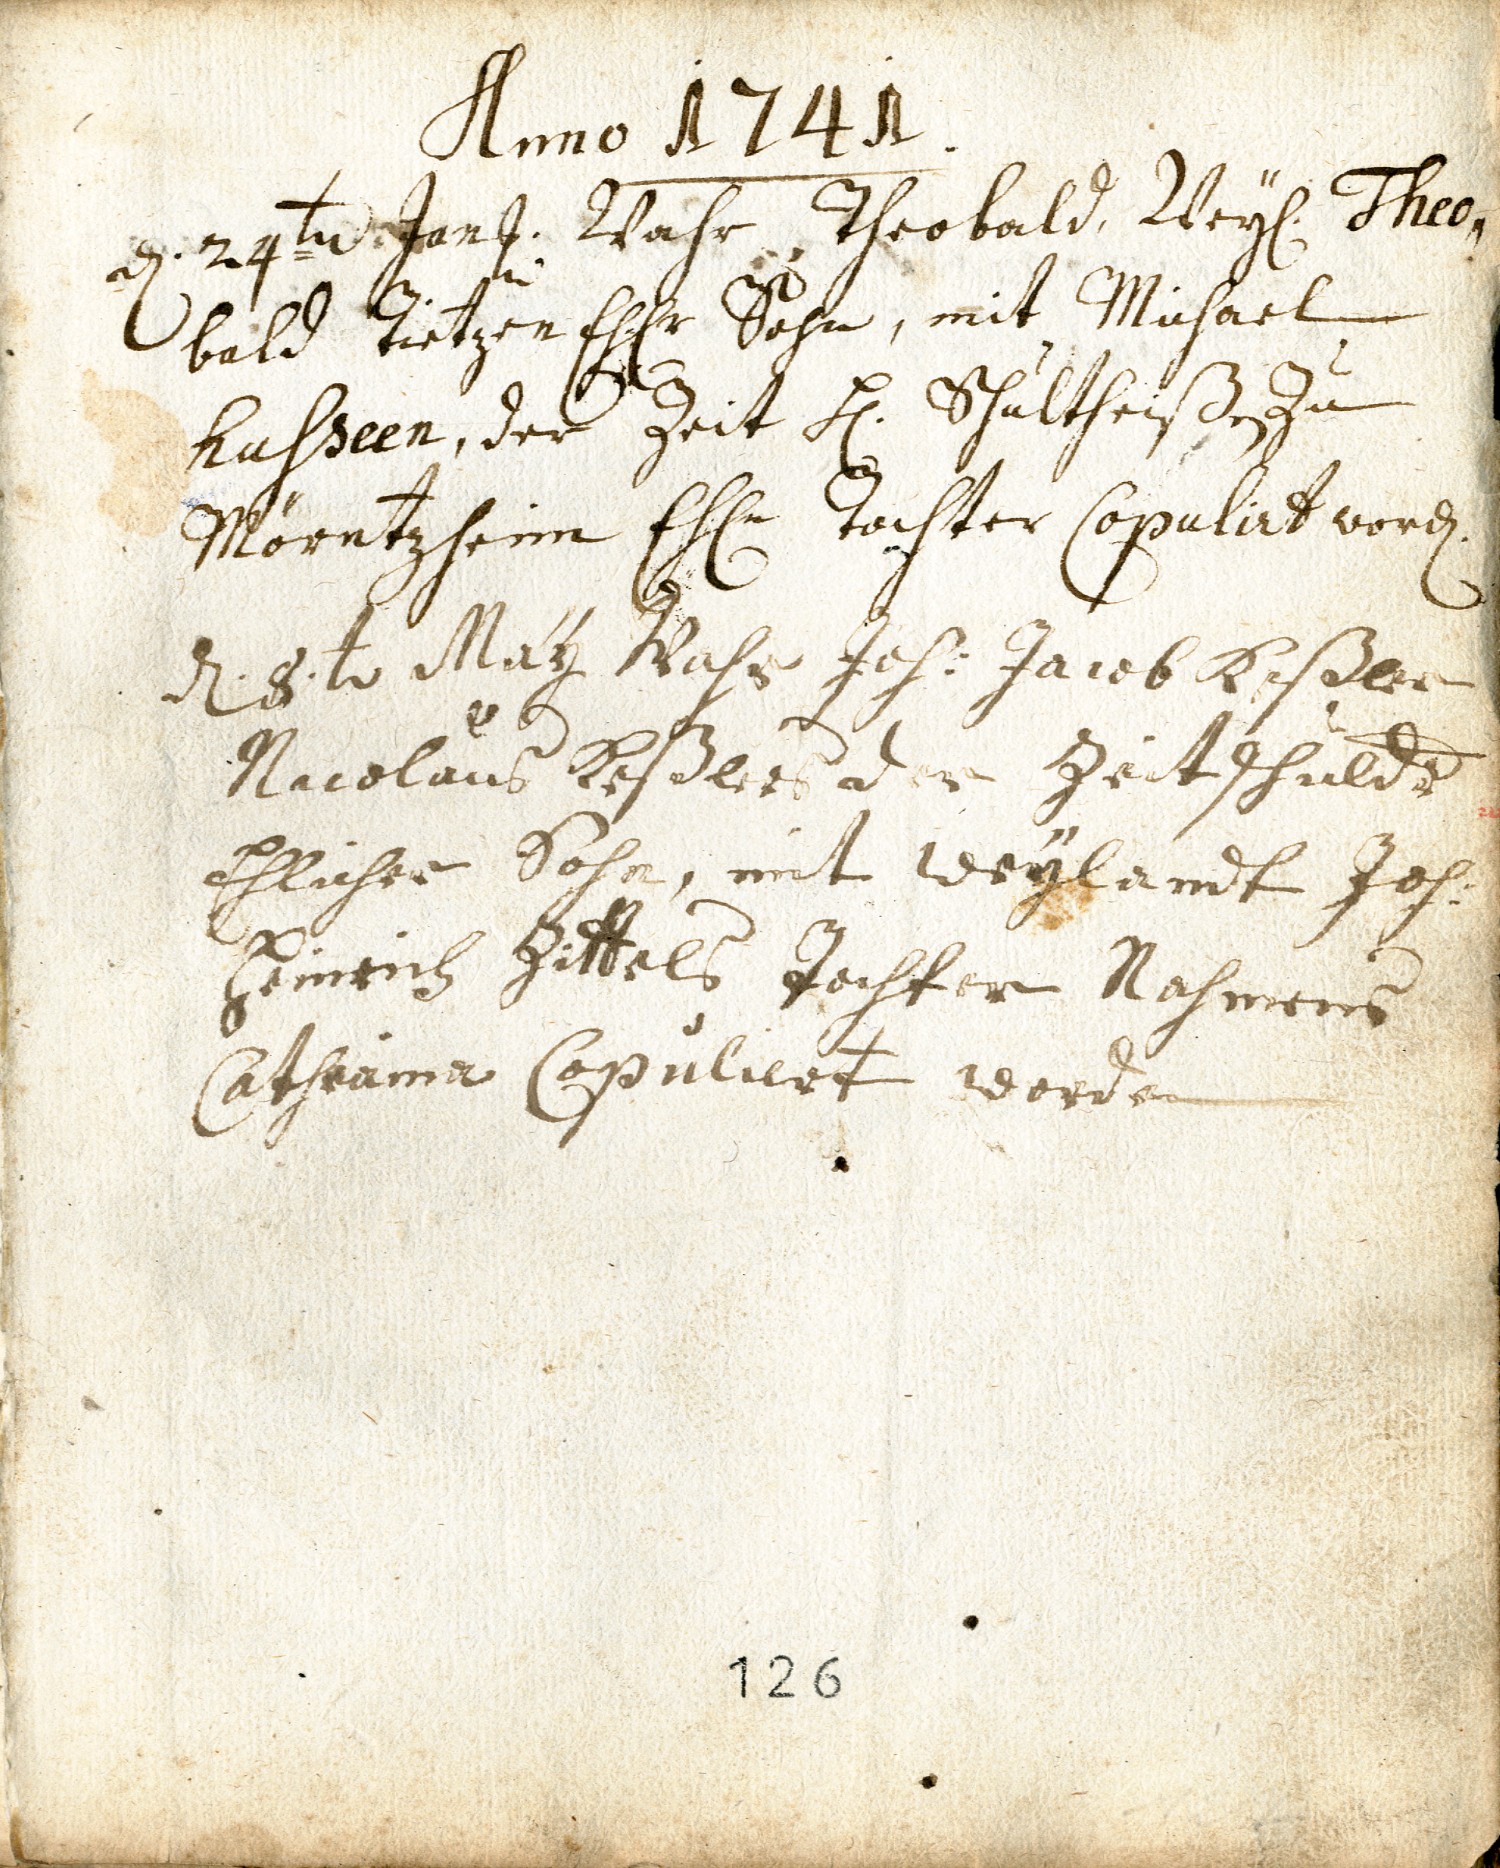 Anno 1741.
d. 24ten Janj. Wahr Theobald, Weyl. Theo-
bald Tietzen Ehlr Sohn, mit Michael
Kuhseen, der Zeit H. Schultheißen Zu
Mörntzheim Ehln Tochter Copulirt word.
d. 8.te Maÿ Wahr Joh: Jacob Keßler
Nicolaus Keßlers der Zeit Schuldr
Ehlicher Sohn, mit weÿlandt Joh:
Heinrich Zittels Tochter Nahmens
Cathraina Copuliert worden
126